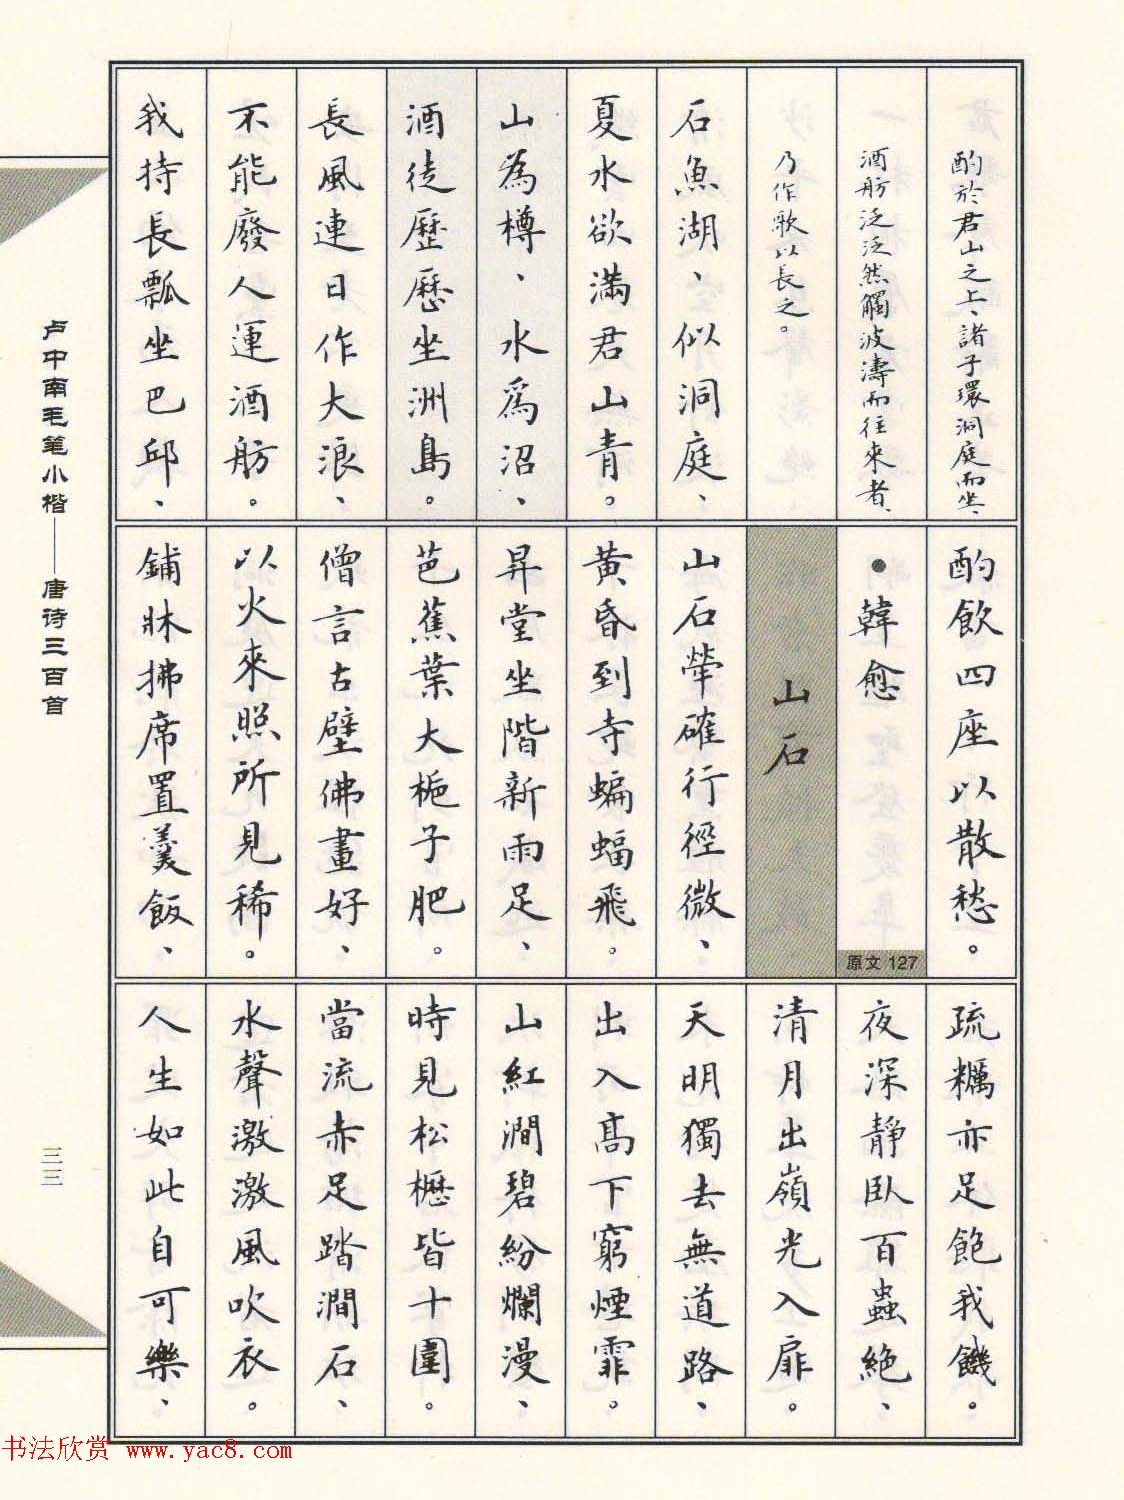 酌於君山之上、諸子環洞庭而坐、
酒舫泛泛然觸波濤而往來者、
乃作歌以長之。
石魚湖、似洞庭、
夏水欲滿君山青。
山為樽、水爲沼、
酒徒歷歷坐洲島。
長風連日作大浪、
不能廢人運酒舫。
我持長瓢坐巴邱、
酌飲四座以散愁。
•韓愈
原文 127
山石
山石犖確行徑微、
黄昏到寺蝙蝠飛。
昇堂坐階新雨足、
芭蕉葉大梔子肥。
僧言古壁佛畫好、
以火來照所見稀。
鋪牀拂席置羹飯、
疏糲亦足飽我饑。
夜深靜臥百蟲絶、
清月出嶺光入扉。
天明獨去無道路、
出入高下窮煙霏。
山紅澗碧紛爛漫、
時見松櫪皆十圍。
當流赤足踏澗石、
水聲激激風吹衣。
人生如此自可樂、
卢中南毛笔小楷——唐诗三百首
三三
书法欣赏 www.yac8.com